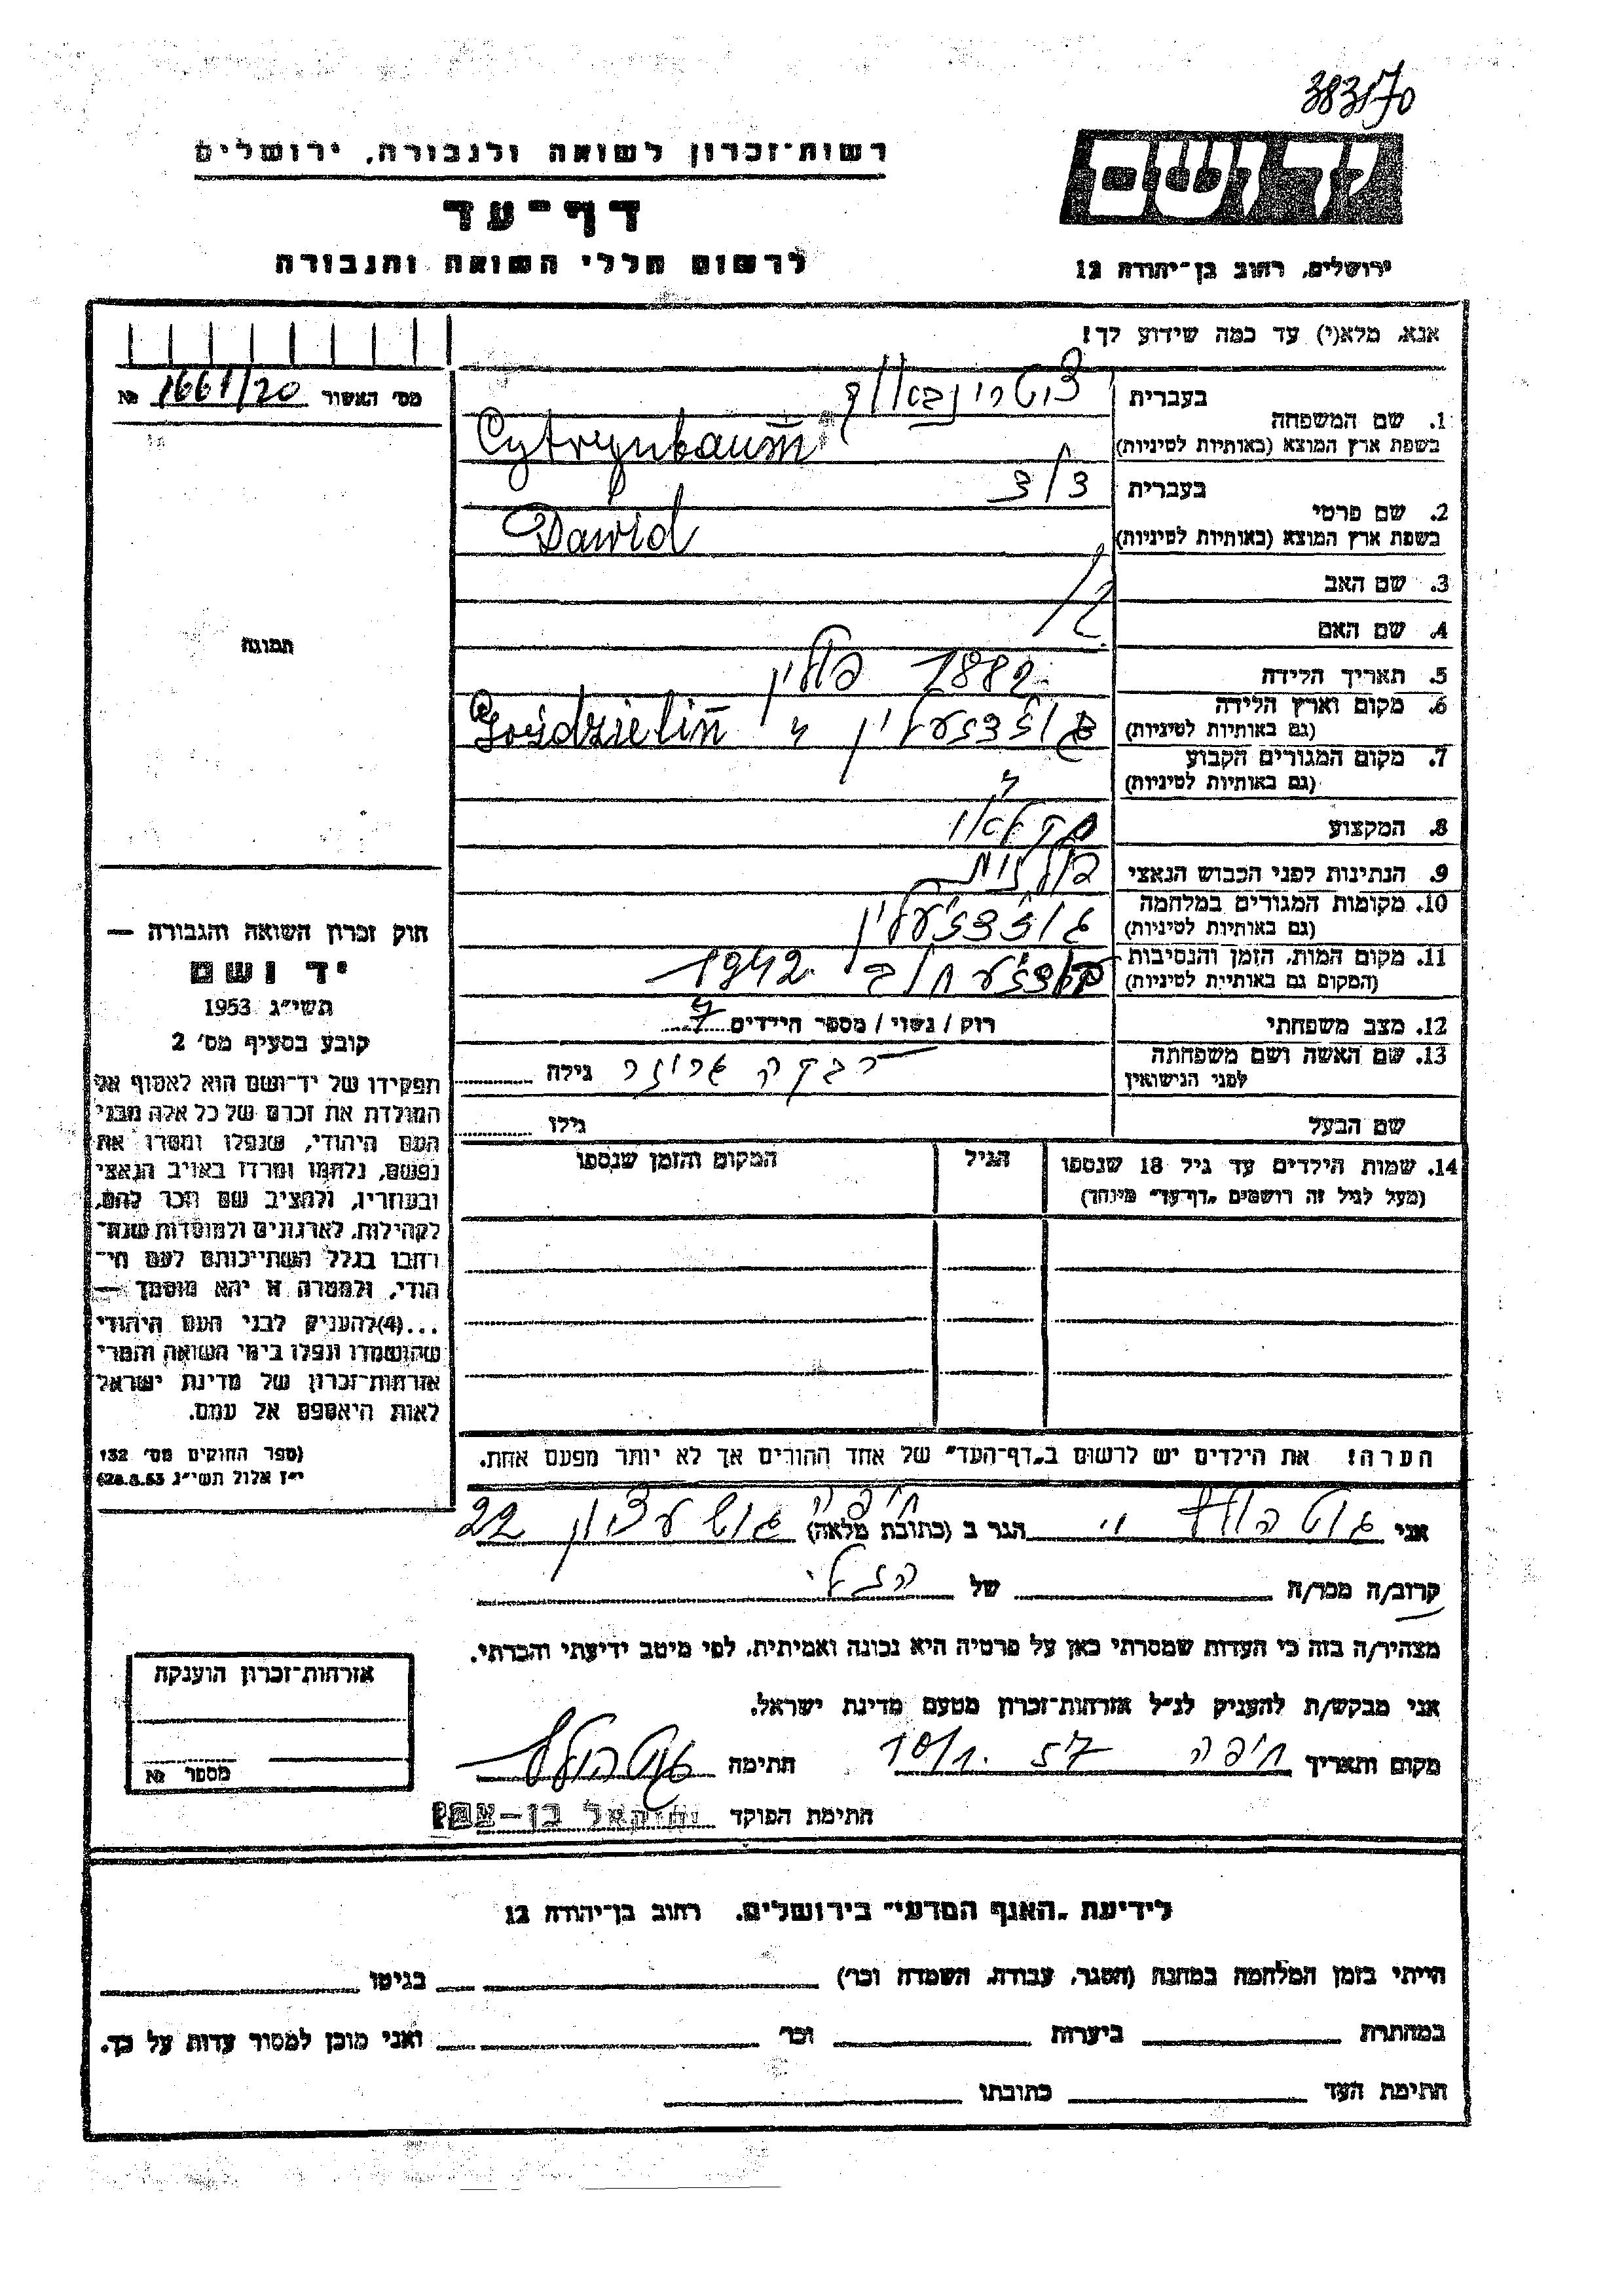 383/70
רשות־זכרון לשואה ולגבורה, ירושלים
יד ושם
דף־עד
לרשום חללי השואה והגבורה
ירושלים, רחוב בן־יהודה 12
אנא, מלא(י) עד כמה שידוע לך!
מס' האשור 1661/20 №
1. שם המשפחה
בעברית ציטרינבאום
בשפת ארץ המוצא (באותיות לטיניות) Cytrynbaum
2. שם פרטי
בעברית דוד
בשפת ארץ המוצא (באותיות לטיניות) Dawid
3. שם האב
4. שם האם
5. תאריך הלידה 1882 פולין
6. מקום וארץ הלידה
(גם באותיות לטיניות)
7. מקום המגורים הקבוע
(גם באותיות לטיניות)
8. המקצוע
9. הנתינות לפני הכבוש הנאצי פולנית
10. מקומות המגורים במלחמה
(גם באותיות לטיניות)
11. מקום המות, הזמן והנסיבות 1942
(המקום גם באותיות לטיניות)
12. מצב משפחתי רוק / נשוי / מספר הילדים
13. שם האשה ושם משפחתה
לפני הנישואין רבקה גילה
שם הבעל גילו
14. שמות הילדים עד גיל 18 שנספו הגיל המקום והזמן שנספו
(מעל לגיל זה רושמים "דף־עד" מיוחד)
תמונה
חוק זכרון השואה והגבורה —
יד ושם
תשי״ג 1953
קובע בסעיף מס' 2
תפקידו של יד־ושם הוא לאסוף אל
המולדת את זכרם של כל אלה מבני
העם היהודי, שנפלו ומסרו את
נפשם, נלחמו ומרדו באויב הנאצי
ובעוזריו, ולהציב שם וזכר להם,
לקהילות, לארגונים ולמוסדות שנח־
רבו בגלל השתייכותם לעם הי־
הודי, ולמטרה זו יהא מוסמך —
...(4)להעניק לבני העם היהודי
שהושמדו ונפלו בימי השואה והמרי
אזרחות־זכרון של מדינת ישראל
לאות היאספם אל עמם.
(ספר החוקים מס' 132
י״ז אלול תשי״ג 28.8.53)
הערה! את הילדים יש לרשום ב"דף־העד" של אחד ההורים אך לא יותר מפעם אחת.
אני הגר ב (כתובת מלאה) חיפה גוש עציון 22
קרוב/ה מכר/ה של
מצהיר/ה בזה כי העדות שמסרתי כאן על פרטיה היא נכונה ואמיתית, לפי מיטב ידיעתי והכרתי.
אני מבקש/ת להעניק לנ״ל אזרחות־זכרון מטעם מדינת ישראל.
מקום ותאריך חיפה 10/1. 57 חתימה
חתימת הפוקד
אזרחות־זכרון הוענקה
מספר №
לידיעת "האגף המדעי" בירושלים, רחוב בן־יהודה 12
הייתי בזמן המלחמה במחנה (הסגר, עבודת, השמדה וכו') בגיטו
במחתרת ביערות וכו' ואני מוכן למסור עדות על כך.
חתימת העד כתובתו